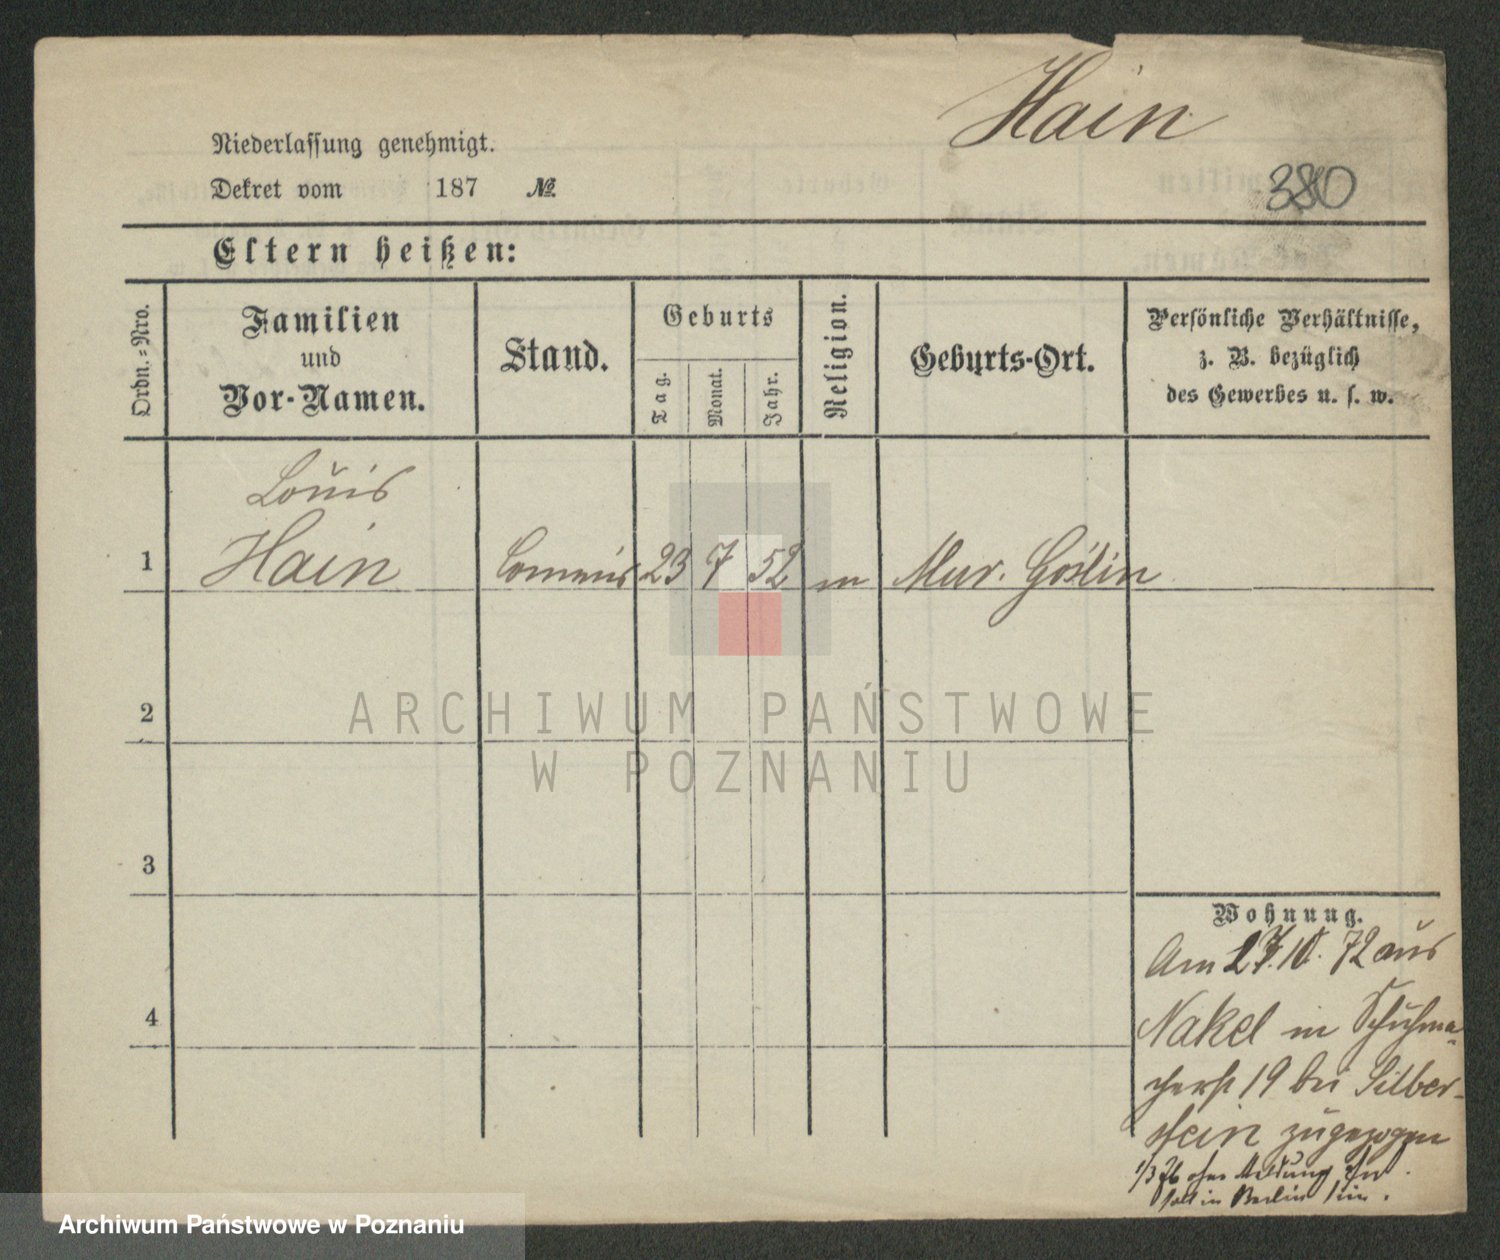 Hain
380
Niederlassung genehmigt.
Dekret vom 187 №
Eltern heißen:
Ordn.=Nro.
Familien
und
Vor-Namen.
Stand.
Geburts
Tag.
Monat.
Jahr.
Religion.
Geburts-Ort.
Persönliche Verhältnisse,
z. B. bezüglich
des Gewerbes u. s. w.
Louis
1 Hain Commis 23 7 52 m Mur. Goślin
2
3
4
Wohnung.
Am 27.10.72 aus
Nakel in Schuhma-
cherst 19 bei Silber-
stein zugezogen
1/3 76 ohne Meldung
soll in Berlin sein.
ARCHIWUM PAŃSTWOWE
W POZNANIU
Archiwum Państwowe w Poznaniu